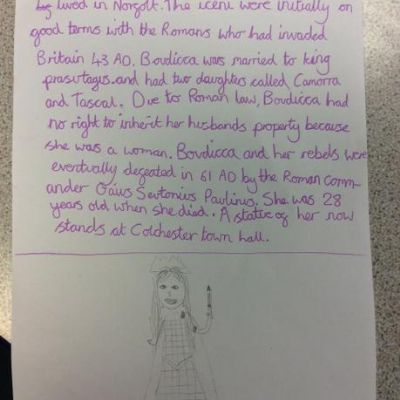 lived in Norfolk. The iceni were initially on
good terms with the Romans who had invaded
Britain 43 AD. Boudicca was married to king
prasutagus. and had two daughters called Camorra
and Tascal. Due to Roman law, Boudicca had
no right to inherit her husbands property because
she was a woman. Boudicca and her rebels were
eventually defeated in 61 AD by the Roman Comm-
ander Gaius Seutonius Paulinus. She was 28
years old when she died. A statue of her now
stands at Colchester town hall.